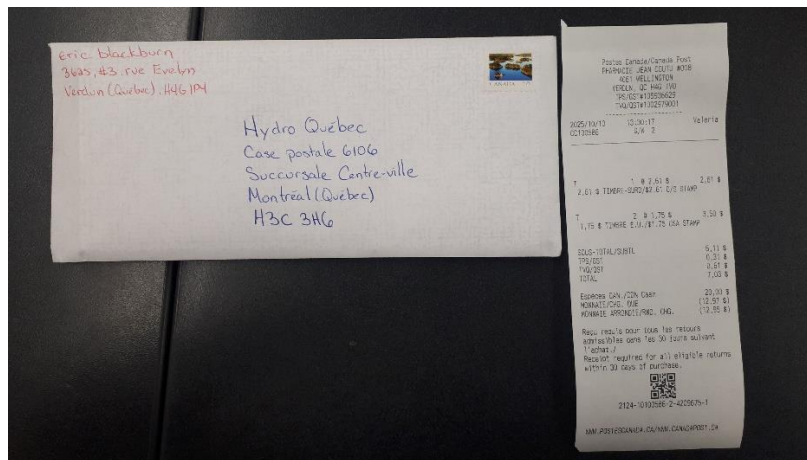 Eric blackburn
3625, #3, rue Evelyn
Verdun (Québec), H4G 1P4
CANADA
Hydro Québec
Case postale 6106
Succursale Centre-ville
Montréal (Québec)
H3C 3H6
Postes Canada/Canada Post
PHARMACIE JEAN COUTU #008
WELLINGTON
VERDUN, QC H4G 1V0
2025/10/10 Valeria
1 @ 2,61 $ 2,61 $
2,61 $ STAMP
T 2 @ 1,75 $ 3,50 $
1,75 $ TIMBRE É.U./$1.75 USA STAMP
SOUS-TOTAL/SUBTL 6,11 $
TPS/GST 0,31 $
TVQ/QST 0,61 $
TOTAL 7,03 $
Espèces CAN./CDN Cash 20,00 $
MONNAIE/CHG. DUE (12,97 $)
MONNAIE ARRONDIE/RND. CHG. (12,95 $)
Reçu requis pour tous les retours
admissibles dans les 30 jours suivant
l'achat./
Receipt required for all eligible returns
within 30 days of purchase.
WWW.POSTESCANADA.CA/WWW.CANADAPOST.CA